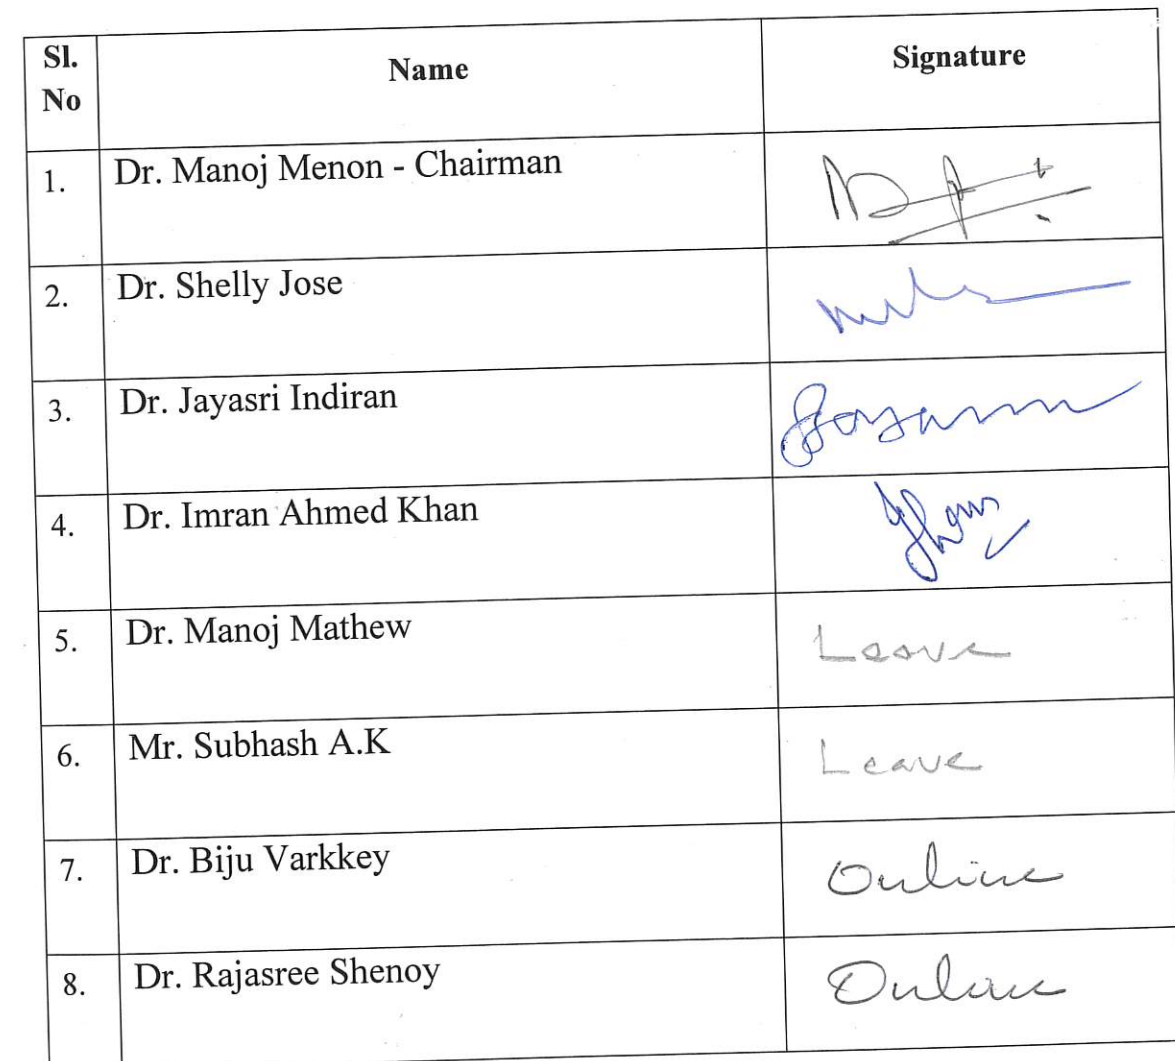 Sl. No Name Signature
1. Dr. Manoj Menon - Chairman
2. Dr. Shelly Jose
3. Dr. Jayasri Indiran
4. Dr. Imran Ahmed Khan
5. Dr. Manoj Mathew Leave
6. Mr. Subhash A.K Leave
7. Dr. Biju Varkkey Online
8. Dr. Rajasree Shenoy Online